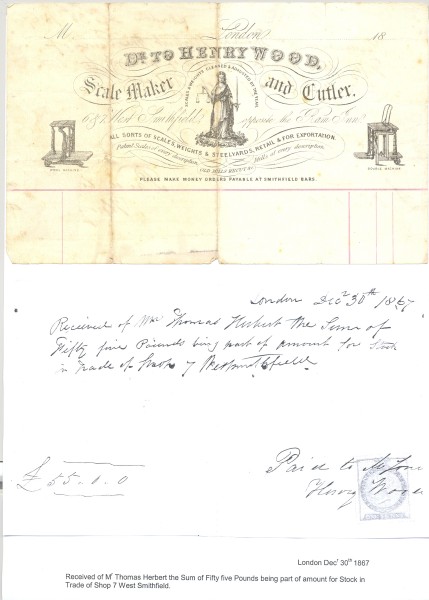 M London 18
Dr. TO HENRY WOOD,
Scale Maker and Cutler.
SCALES & WEIGHTS CLEANED & ADJUSTED BY THE YEAR
6 & 7, West Smithfield, opposite the Ram Inn.
ALL SORTS OF SCALES, WEIGHTS & STEELYARDS, RETAIL & FOR EXPORTATION.
Patent Scales of every description, Mills of every description,
PLEASE MAKE MONEY ORDERS PAYABLE AT SMITHFIELD BARS.
London Decr 30th 1867
Received of Mr Thomas Herbert the Sum of
Fifty five Pounds being part of amount for Stock
in Trade of Shop 7 West Smithfield
£55-0-0
Paid to Me
Henry Wood
London Decr 30th 1867
Received of Mr Thomas Herbert the Sum of Fifty five Pounds being part of amount for Stock in
Trade of Shop 7 West Smithfield.